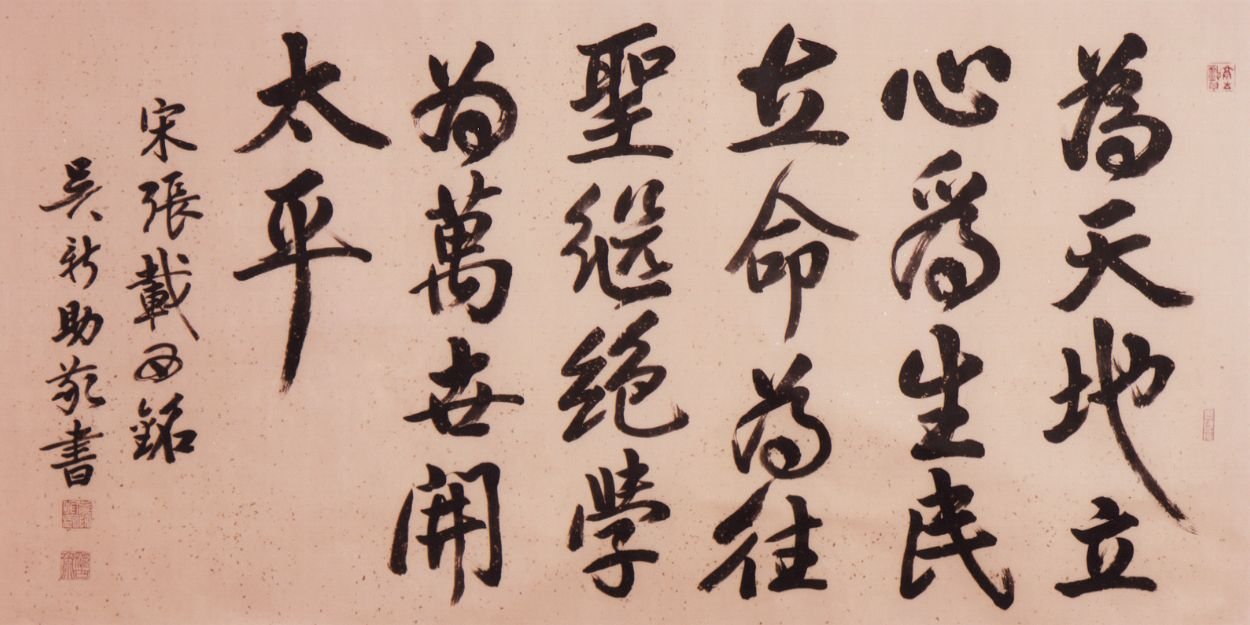 為天地立
心為生民
立命為往
聖継絶學
為萬世開
太平
宋張載西銘
吳新助敬書